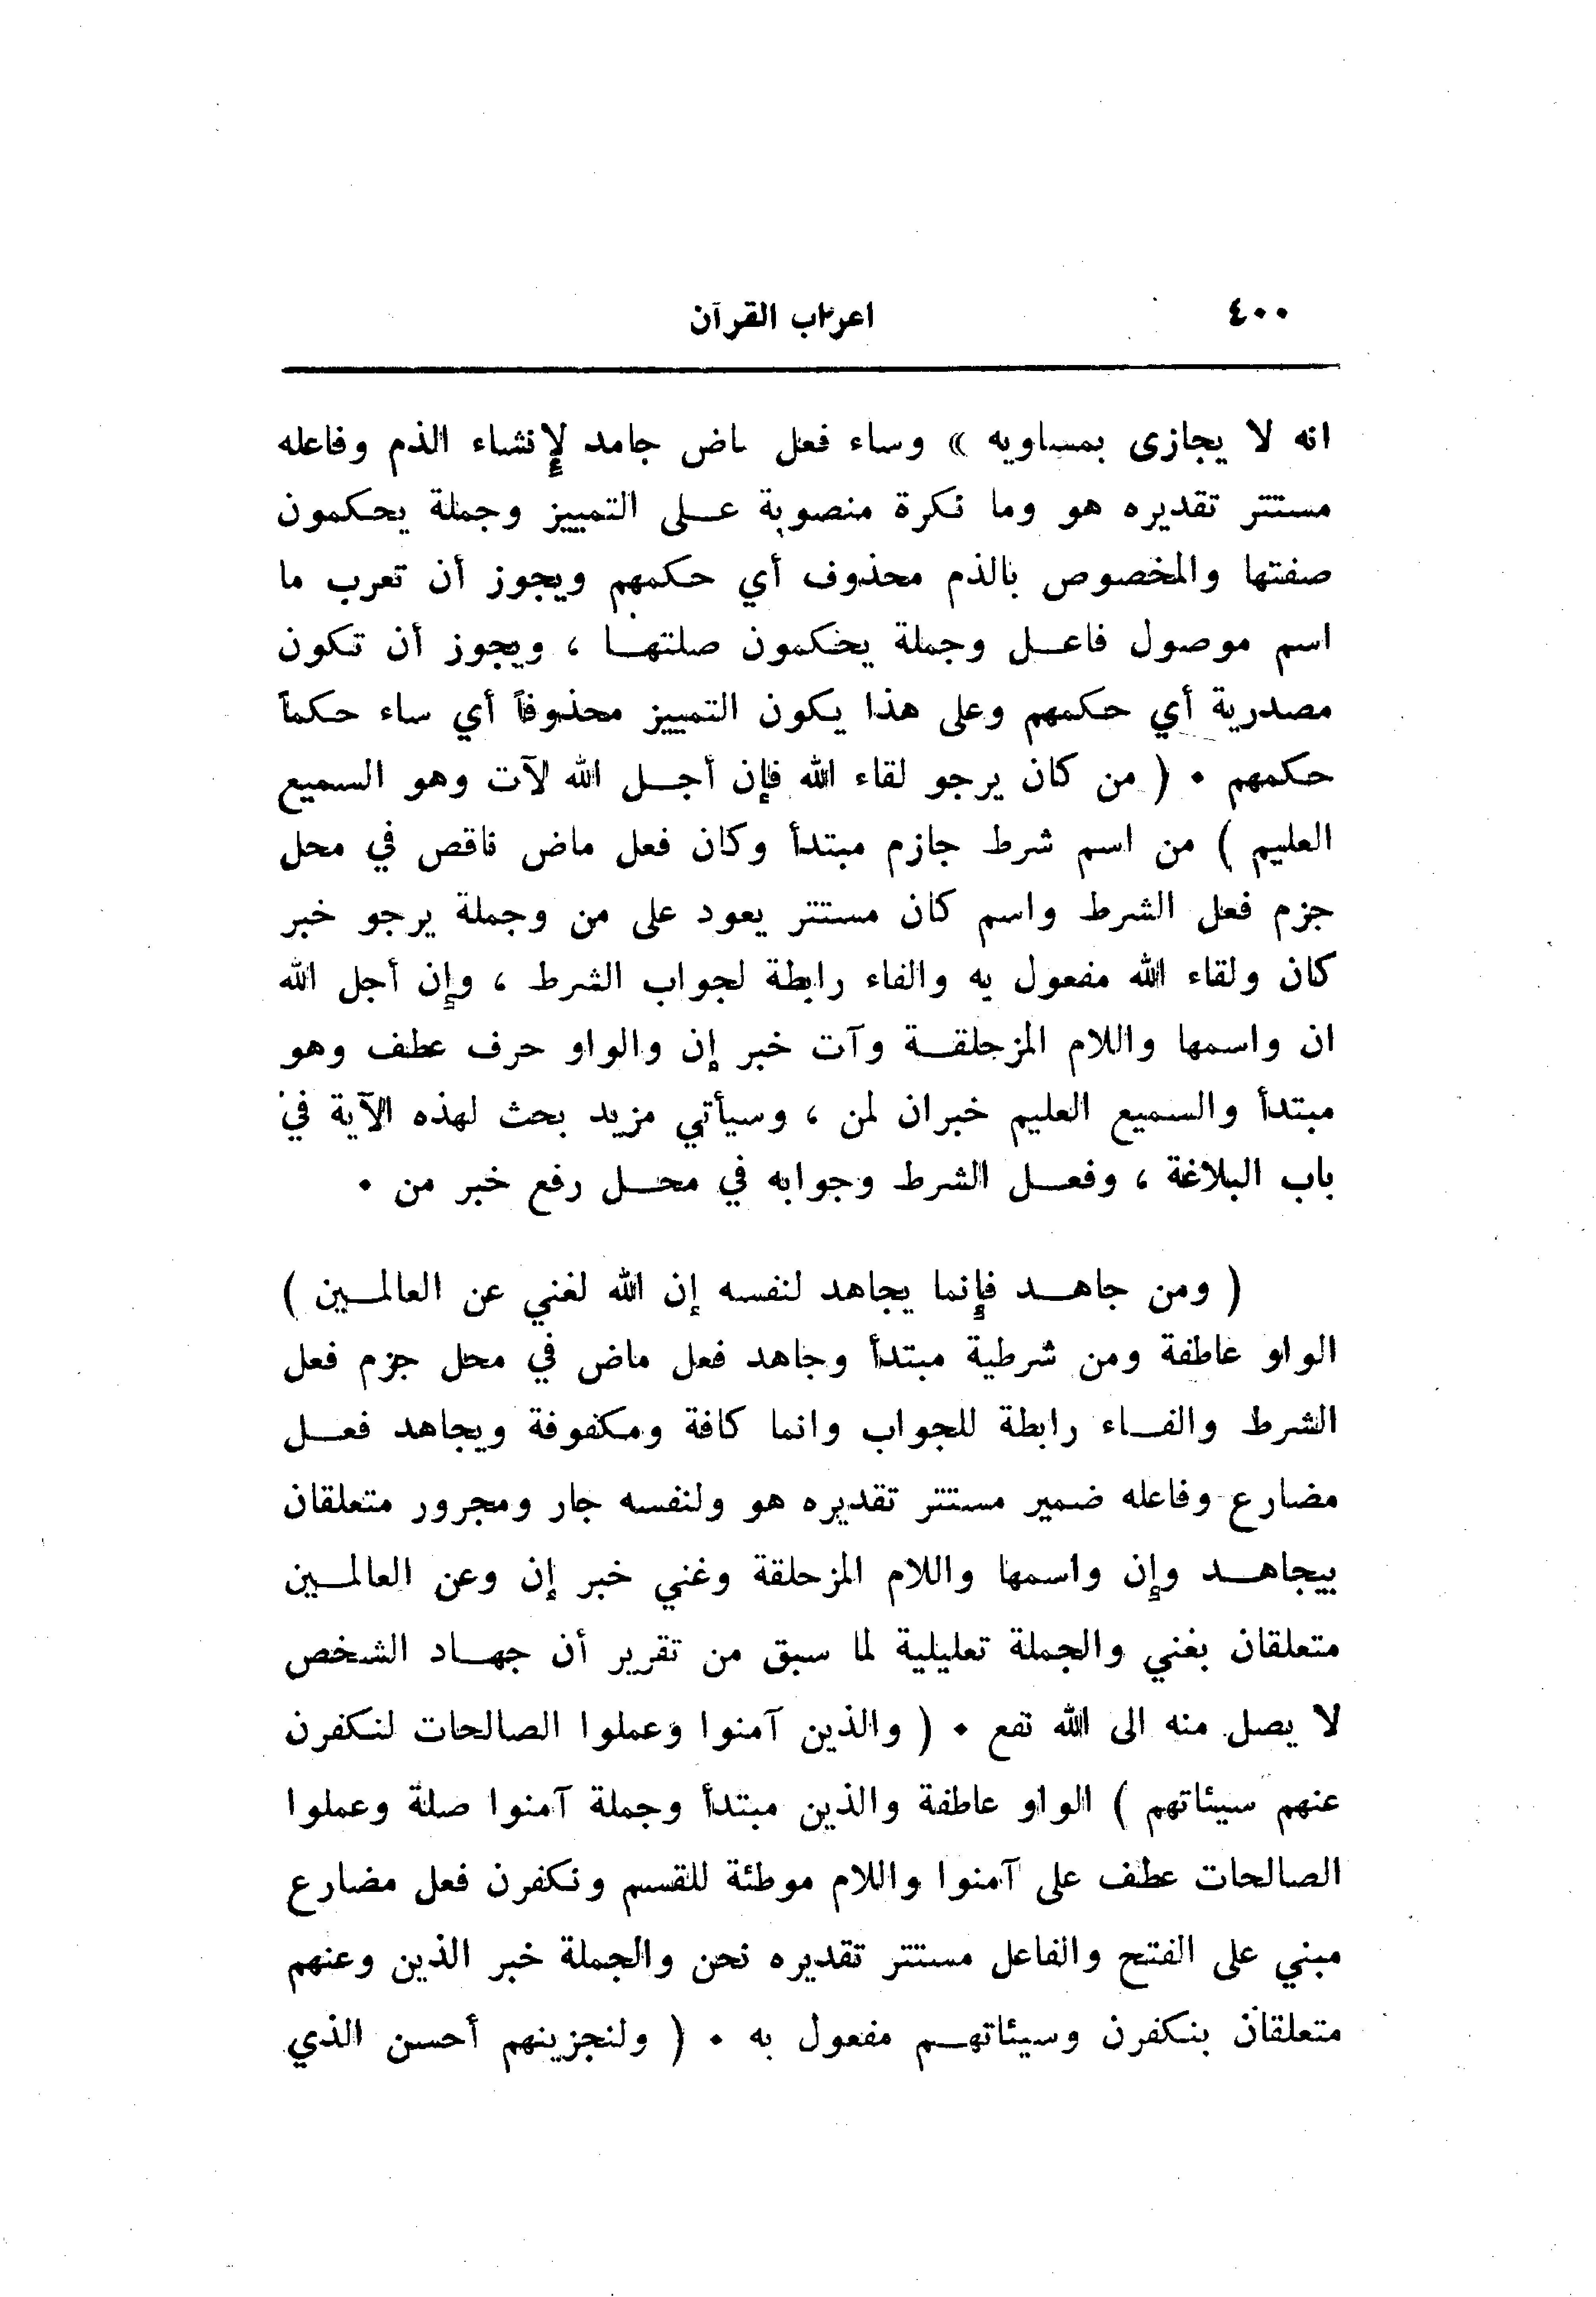 ٤٠٠ اعراب القرآن
انه لا يجازى بمساويه » وساء فعل ماض جامد لإنشاء الذم وفاعله
مستتر تقديره هو وما نكرة منصوبة على التمييز وجملة يحكمون
صفتها والمخصوص بالذم محذوف أي حكمهم ويجوز أن تعرب ما
اسم موصول فاعل وجملة يحكمون صلتها ، ويجوز أن تكون
مصدرية أي حكمهم وعلى هذا يكون التمييز محذوفاً أي ساء حكماً
حكمهم . ( من كان يرجو لقاء الله فإن أجل الله لآت وهو السميع
العليم ) من اسم شرط جازم مبتدأ وكان فعل ماض ناقص في محل
جزم فعل الشرط واسم كان مستتر يعود على من وجملة يرجو خبر
كان ولقاء الله مفعول به والفاء رابطة لجواب الشرط ، وإن أجل الله
ان واسمها واللام المزحلقة وآت خبر إن والواو حرف عطف وهو
مبتدأ والسميع العليم خبران لمن ، وسيأتي مزيد بحث لهذه الآية في
باب البلاغة ، وفعل الشرط وجوابه في محل رفع خبر من .
( ومن جاهد فإنما يجاهد لنفسه إن الله لغني عن العالمين )
الواو عاطفة ومن شرطية مبتدأ وجاهد فعل ماض في محل جزم فعل
الشرط والفاء رابطة للجواب وانما كافة ومكفوفة ويجاهد فعل
مضارع وفاعله ضمير مستتر تقديره هو ولنفسه جار ومجرور متعلقان
بيجاهد وإن واسمها واللام المزحلقة وغني خبر إن وعن العالمين
متعلقان بغني والجملة تعليلية لما سبق من تقرير أن جهاد الشخص
لا يصل منه الى الله نفع . ( والذين آمنوا وعملوا الصالحات لنكفرن
عنهم سيئاتهم ) الواو عاطفة والذين مبتدأ وجملة آمنوا صلة وعملوا
الصالحات عطف على آمنوا واللام موطئة للقسم ونكفرن فعل مضارع
مبني على الفتح والفاعل مستتر تقديره نحن والجملة خبر الذين وعنهم
متعلقان بنكفرن وسيئاتهم مفعول به . ( ولنجزينهم أحسن الذي